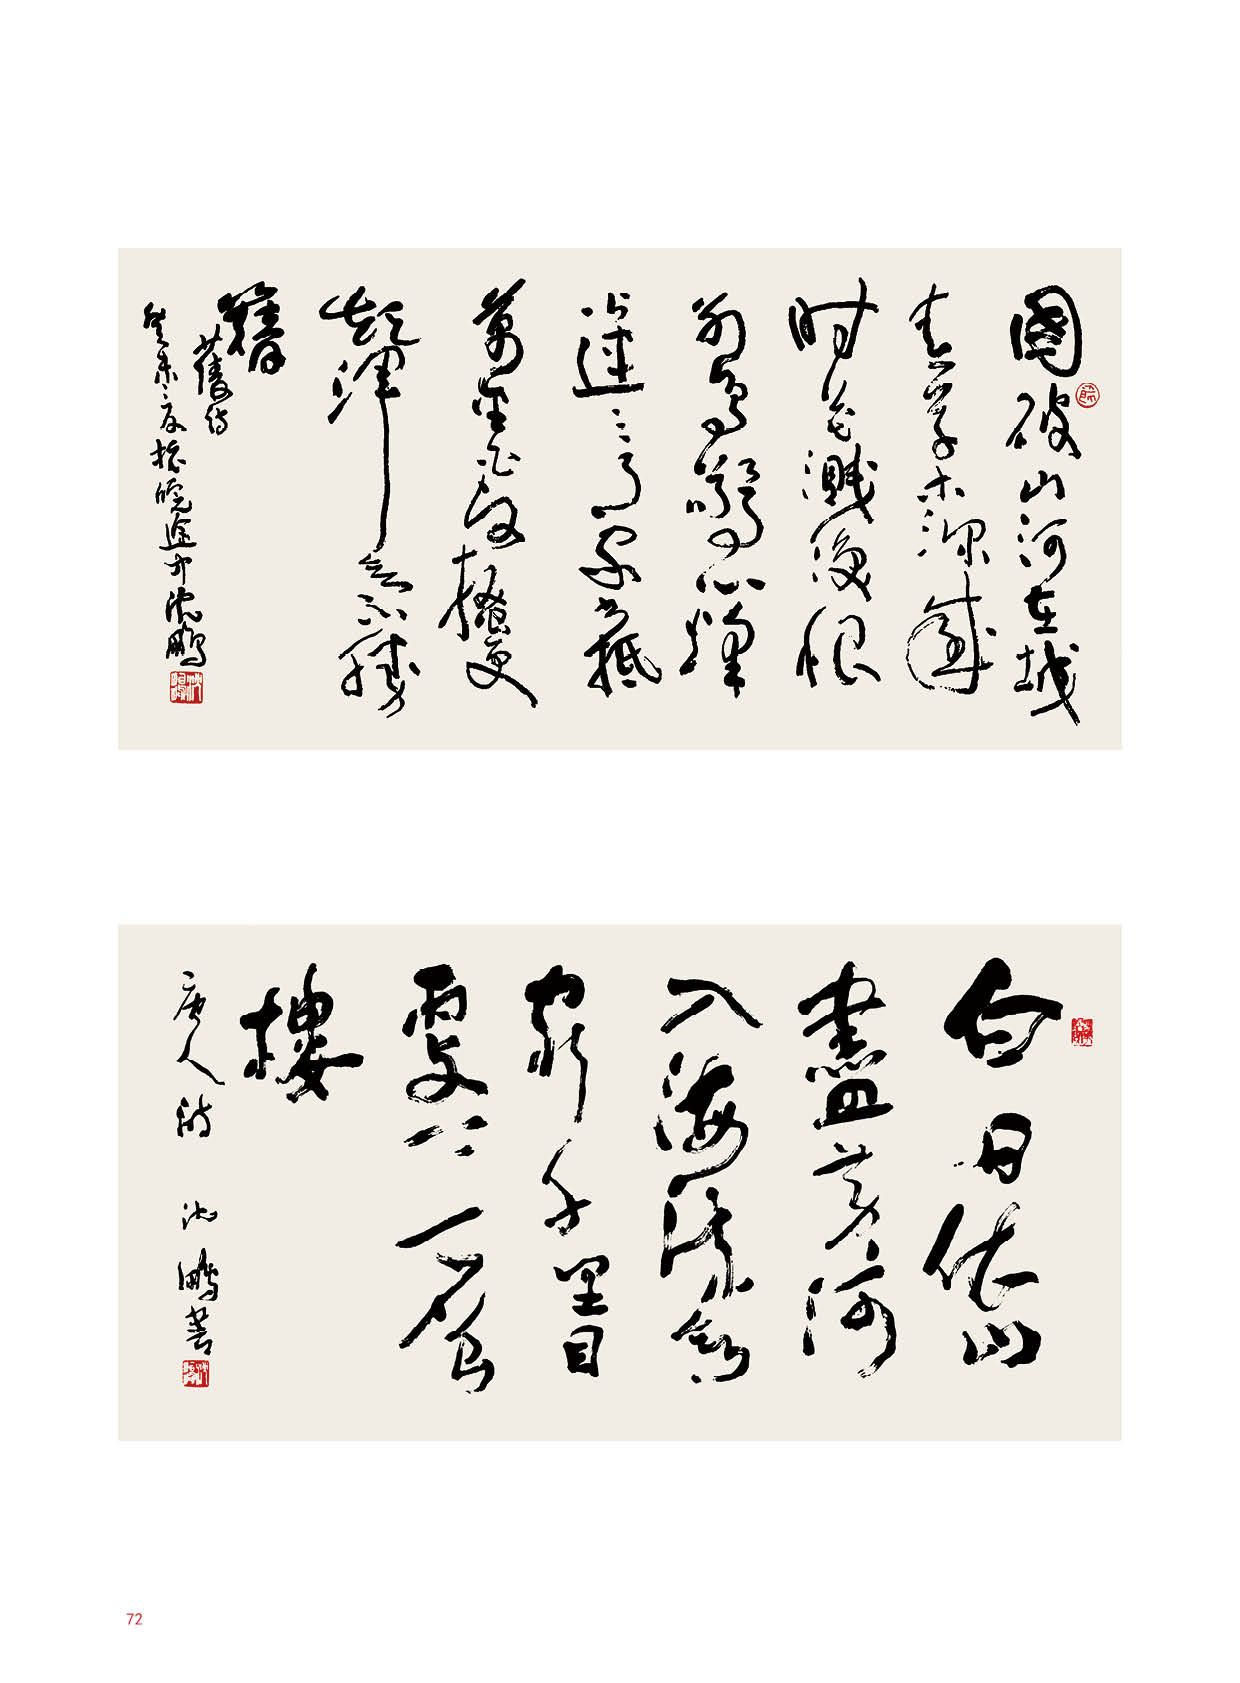 國破山河在城
春草木深感
时花濺淚恨
别鳥驚心烽
火連三月家書抵
萬金白頭搔更
短渾欲不勝
簪
少陵诗
癸未夏於皖途中沈鵬
白日依山
盡黄河
入海流欲
窮千里目
更上一層
樓
唐人詩 沈鵬書
72